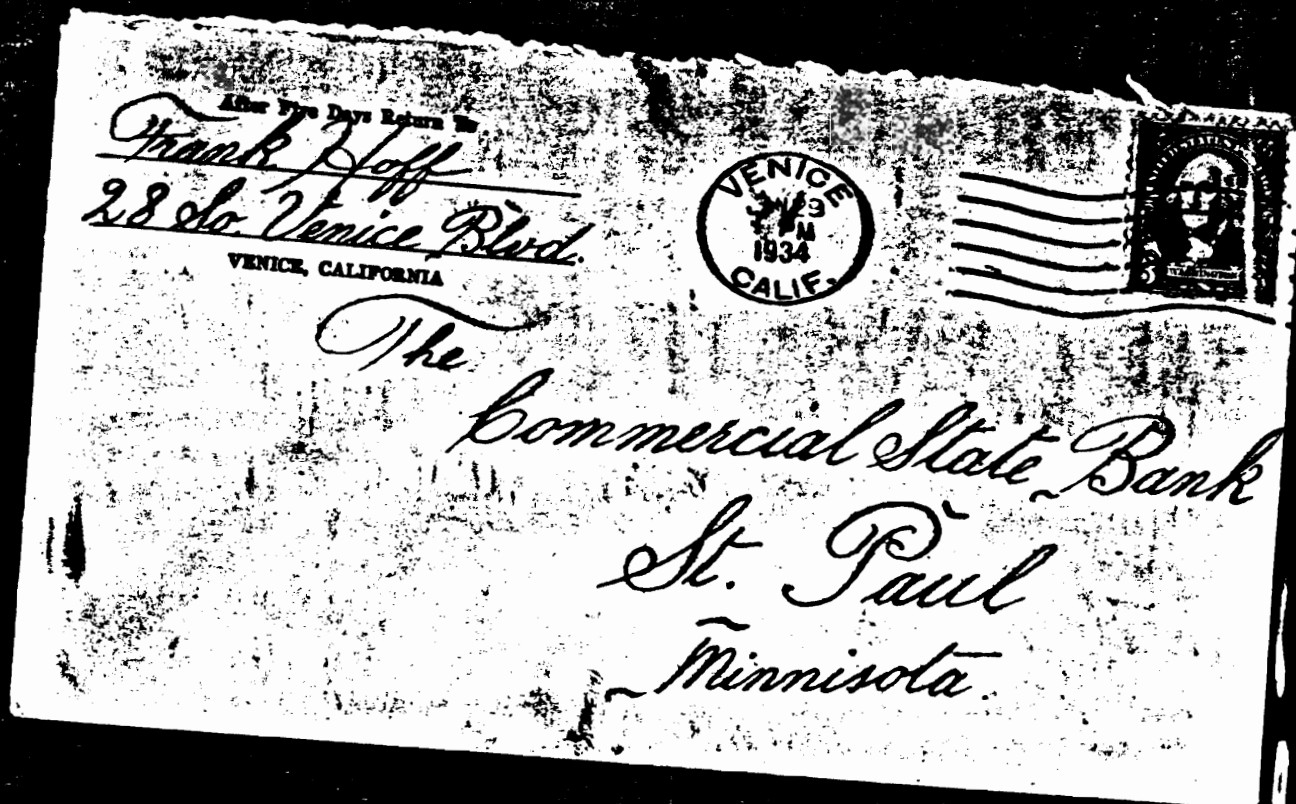 After Five Days Return To
Frank Hoff
28 So. Venice Blvd.
VENICE, CALIFORNIA
VENICE
1934
CALIF.
3
WASHINGTON
The
Commercial State Bank
St. Paul
Minnisota.